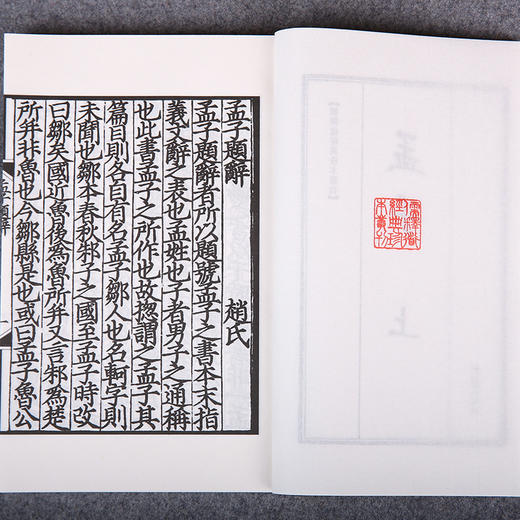 孟子題辭
趙氏
孟子題辭者所以題號孟子之書本末指
義文辭之表也孟姓也子者男子之通稱
也此書孟子之所作也故揔謂之孟子其
篇目則各自有名孟子鄒人也名軻字則
未聞也鄒本春秋邾子之國至孟子時改
曰鄒矣國近魯後爲魯所并又言邾爲楚
所并非魯也今鄒縣是也或曰孟子魯公
孟
上